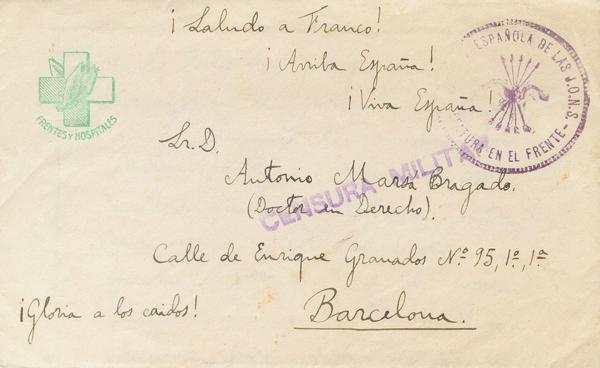 ¡Saludo a Franco!
¡Arriba España!
¡Viva España!
FRENTES Y HOSPITALES
ESPAÑOLA DE LAS J.O.N.S.
EN EL FRENTE -
Sr. D.
Antonio Marsá Bragado.
(Doctor en Derecho).
CENSURA MILITAR
Calle de Enrique Granados Nº 95, 1º, 1ª
¡Gloria a los caidos!
Barcelona.